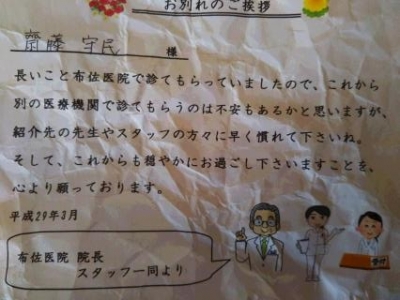 お別れのご挨拶
齋藤 守民 様
長いこと布佐医院で診てもらっていましたので、これから
別の医療機関で診てもらうのは不安もあるかと思いますが、
紹介先の先生やスタッフの方々に早く慣れて下さいね。
そして、これからも穏やかにお過ごし下さいますことを、
心より願っております。
平成29年3月
布佐医院 院長
スタッフ一同より
受付